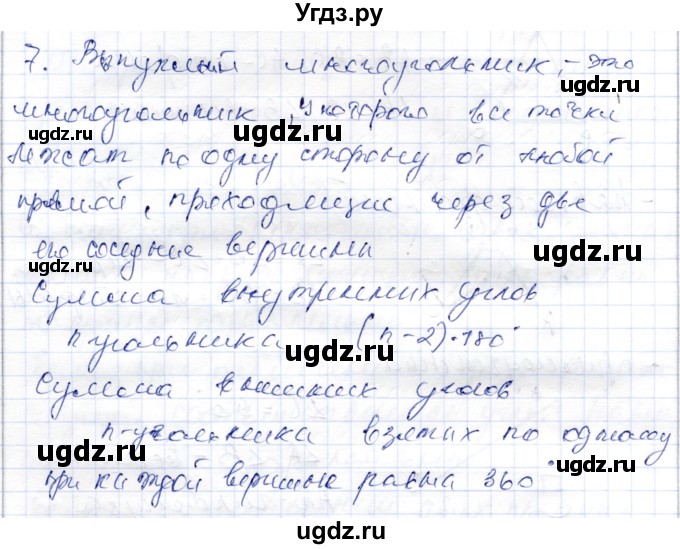 Угдз.ру
7. Выпуклый многоугольник, - это
многоугольник, у которого все точки
лежат по одну сторону от любой
прямой, проходящие через две
его соседние вершины
Сумма внутренних углов
n угольника (n-2)·180°
Сумма внешних углов
n-угольника взятых по одному
при каждой вершине равна 360°
uqdz.ru
uqdz.ru
uqdz.ru
uqdz.ru
uqdz.ru
uqdz.ru
uqdz.ru
uqdz.ru
uqdz.ru
uqdz.ru
uqdz.ru
uqdz.ru
uqdz.ru